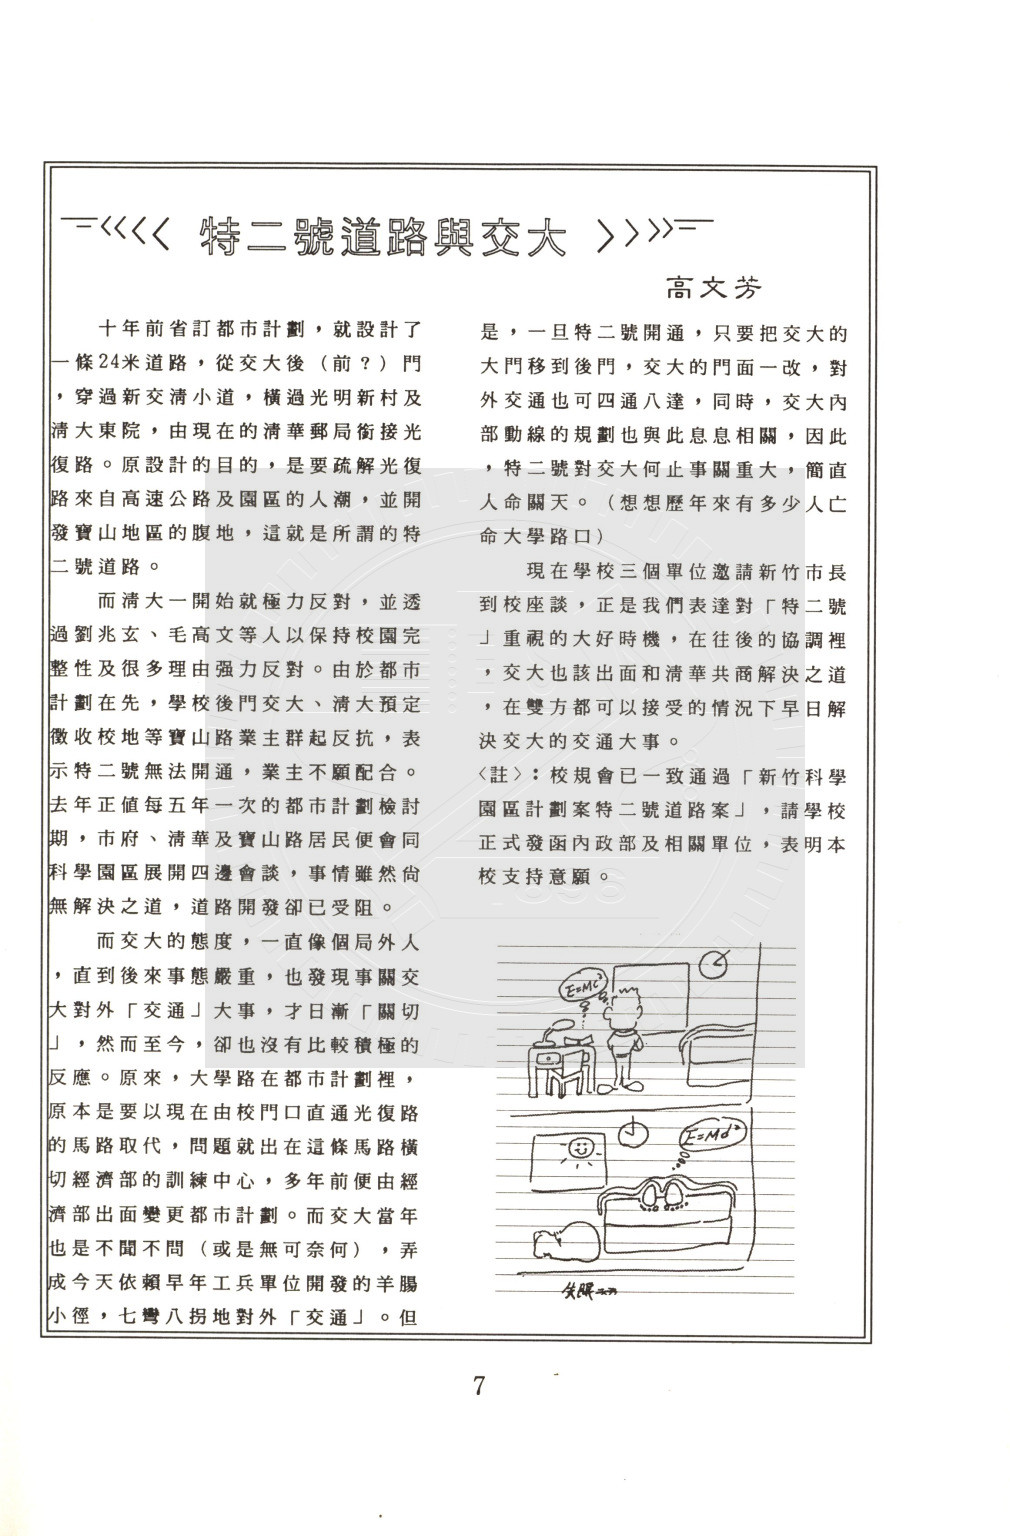 特二號道路與交大
高文芳
十年前省訂都市計劃，就設計了
一條24米道路，從交大後（前？）門
，穿過新交清小道，橫過光明新村及
清大東院，由現在的清華郵局銜接光
復路。原設計的目的，是要疏解光復
路來自高速公路及園區的人潮，並開
發寶山地區的腹地，這就是所謂的特
二號道路。
而清大一開始就極力反對，並透
過劉兆玄、毛高文等人以保持校園完
整性及很多理由强力反對。由於都市
計劃在先，學校後門交大、清大預定
徵收校地等寶山路業主群起反抗，表
示特二號無法開通，業主不願配合。
去年正值每五年一次的都市計劃檢討
期，市府、清華及寶山路居民便會同
科學園區展開四邊會談，事情雖然尚
無解決之道，道路開發卻已受阻。
而交大的態度，一直像個局外人
，直到後來事態嚴重，也發現事關交
大對外「交通」大事，才日漸「關切
」，然而至今，卻也沒有比較積極的
反應。原來，大學路在都市計劃裡，
原本是要以現在由校門口直通光復路
的馬路取代，問題就出在這條馬路橫
切經濟部的訓練中心，多年前便由經
濟部出面變更都市計劃。而交大當年
也是不聞不問（或是無可奈何），弄
成今天依賴早年工兵單位開發的羊腸
小徑，七彎八拐地對外「交通」。但
是，一旦特二號開通，只要把交大的
大門移到後門，交大的門面一改，對
外交通也可四通八達，同時，交大內
部動線的規劃也與此息息相關，因此
，特二號對交大何止事關重大，簡直
人命關天。（想想歷年來有多少人亡
命大學路口）
現在學校三個單位邀請新竹市長
到校座談，正是我們表達對「特二號
」重視的大好時機，在往後的協調裡
，交大也該出面和清華共商解決之道
，在雙方都可以接受的情況下早日解
決交大的交通大事。
〈註〉：校規會已一致通過「新竹科學
園區計劃案特二號道路案」，請學校
正式發函內政部及相關單位，表明本
校支持意願。
E=MC²
E=Md²
失眠
7
1896